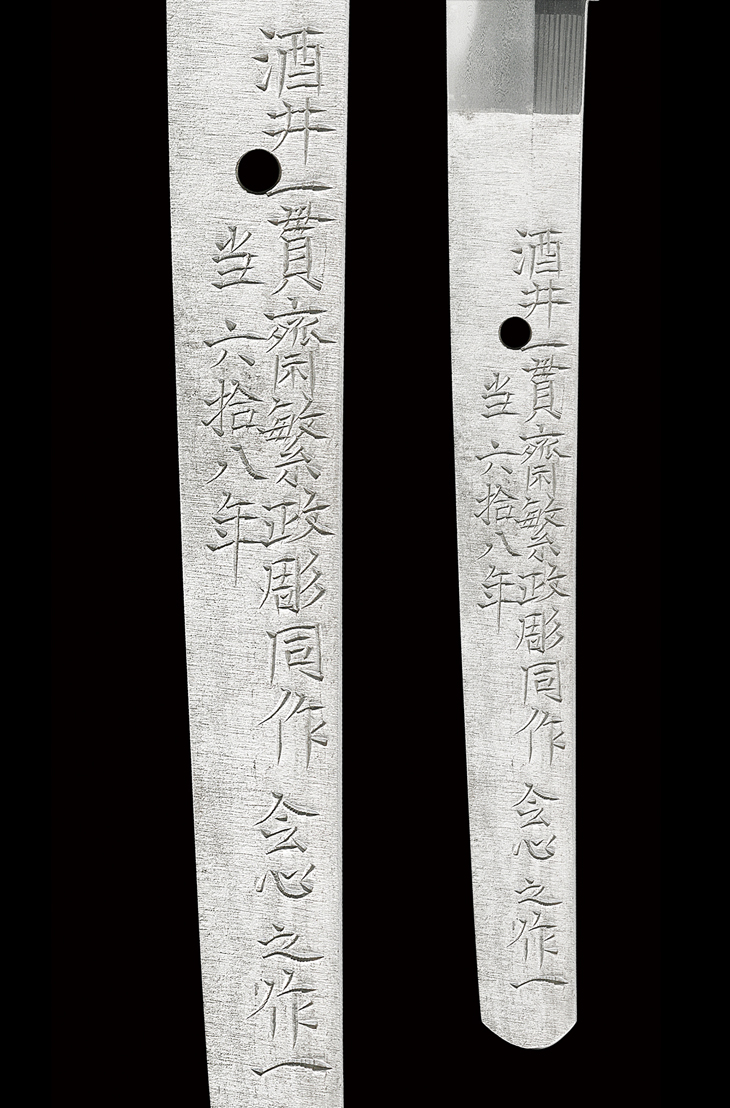 酒井一貫齋繁政彫同作 会心之作一
当六拾八年
酒井一貫齋繁政彫同作 会心之作一
当六拾八年